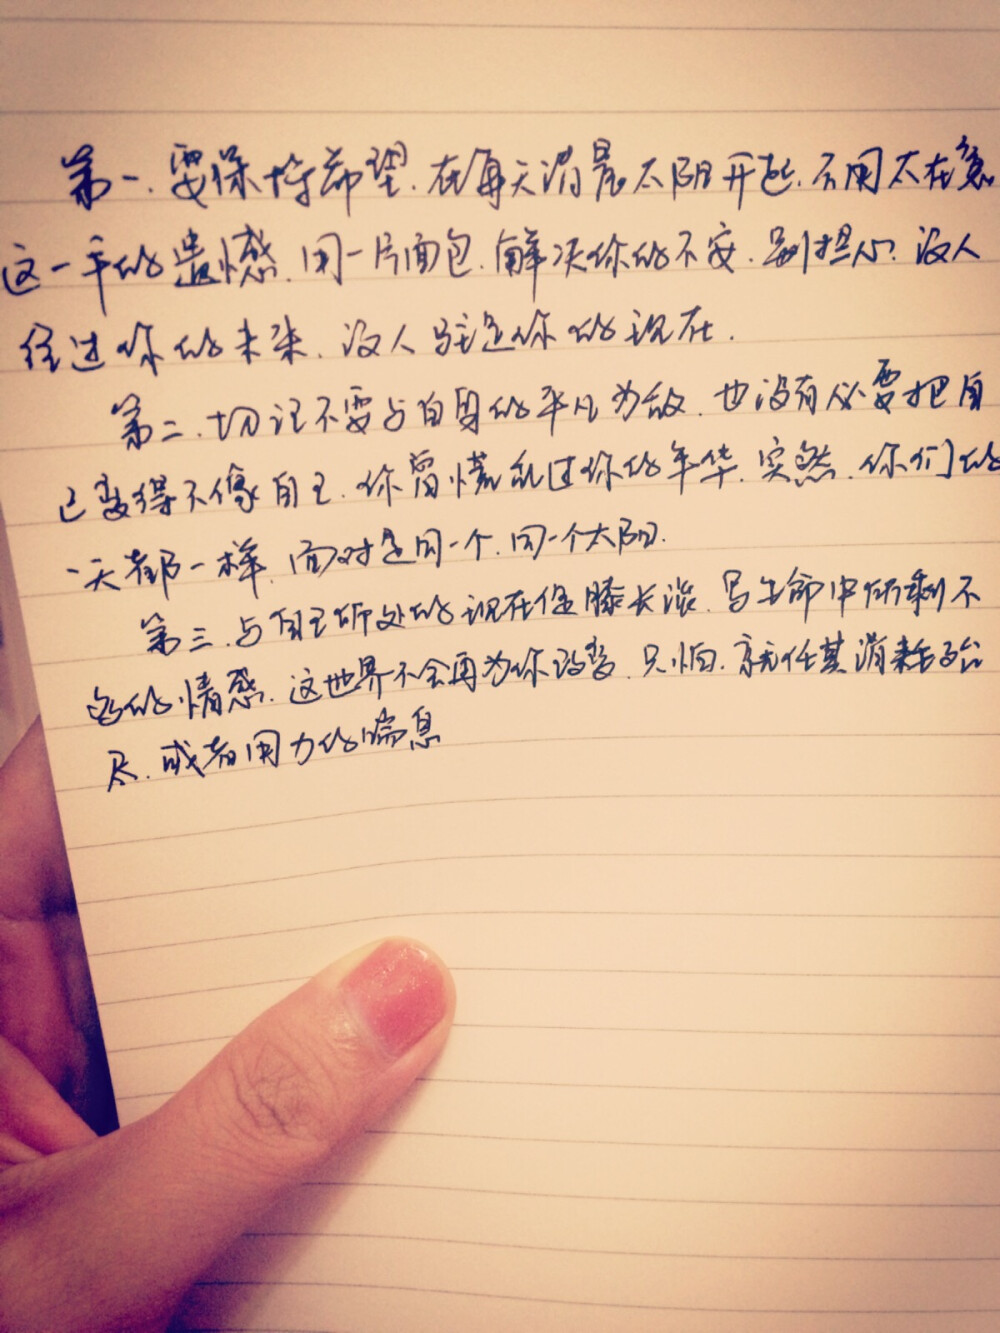 第一.要保持希望.在每天清晨太阳升起.不用太在意
这一年的遗憾.用一片面包.解决你的不安.别担心.没人
经过你的未来.没人驻足你的现在.
第二.切记不要与自身的平凡为敌.也没有必要把自
己变得不像自己.你曾慌乱过你的年华.突然.你们的
一天都一样.面对是同一个.同一个太阳.
第三.与自己所处的现在促膝长谈.与生命中所剩不
多的情感.这世界不会再为你改变.只怕.就任其消耗殆
尽.或者用力的喘息